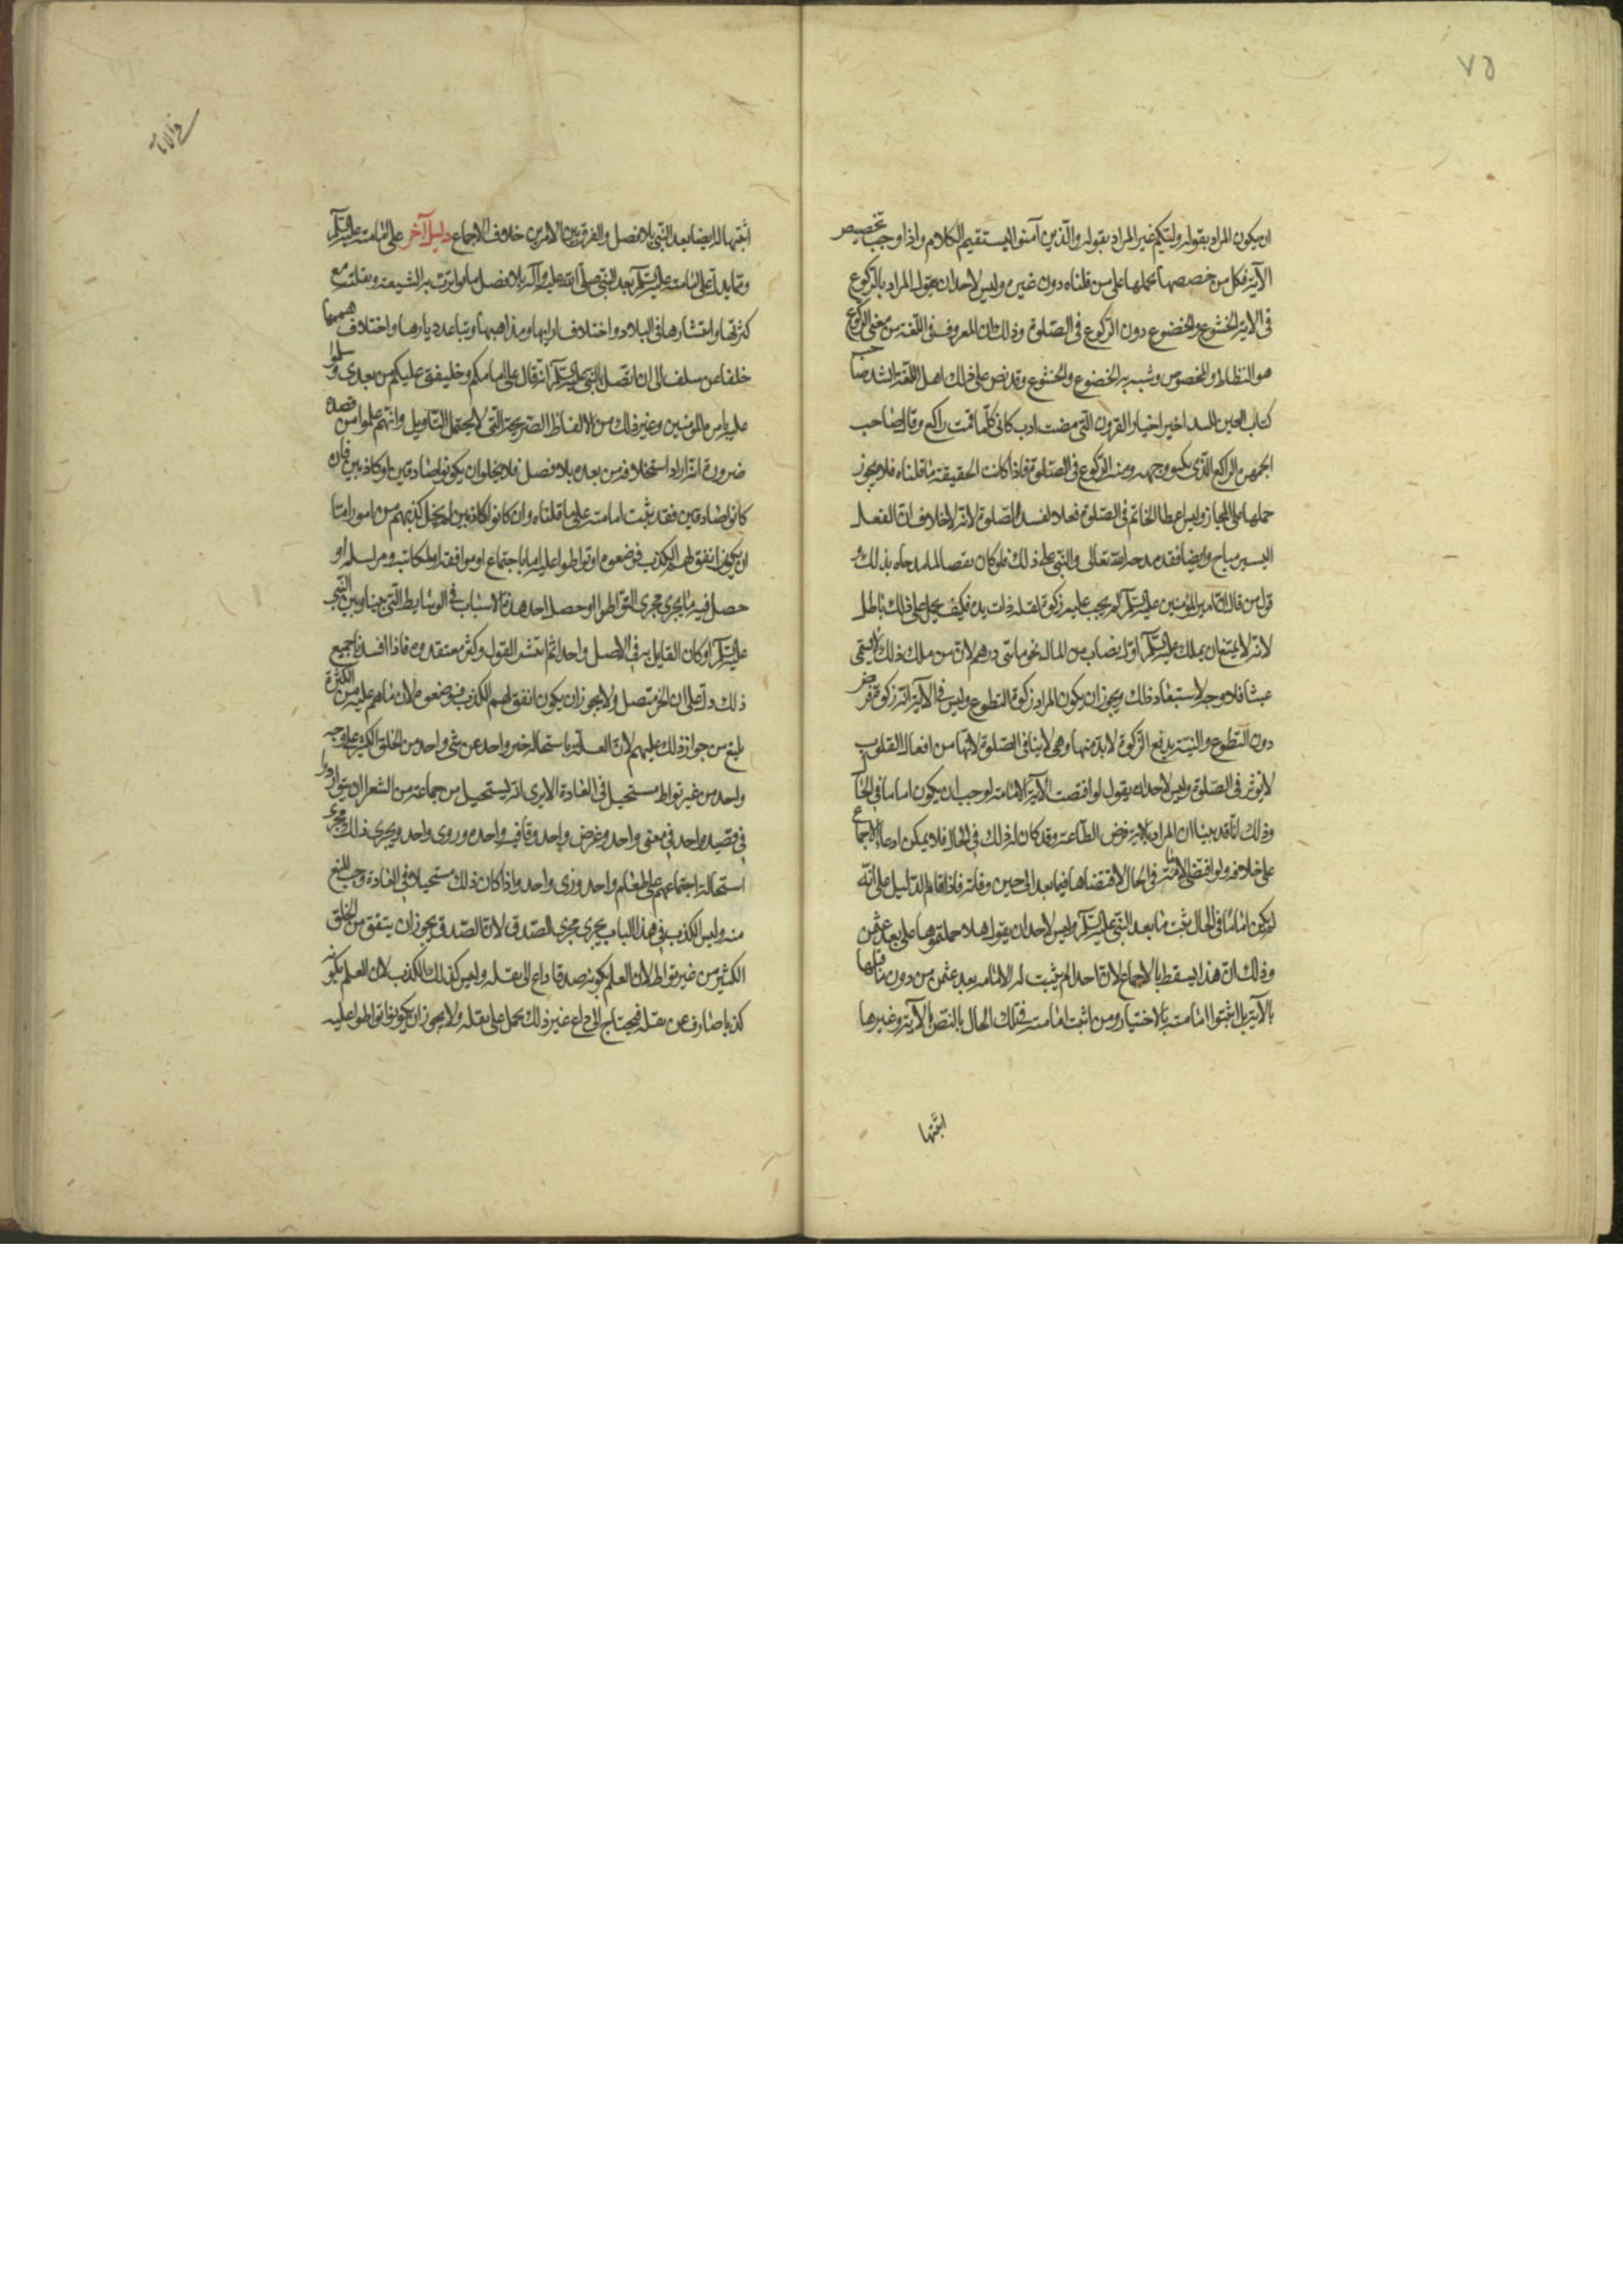 ٧٥
ان يكون المراد بقوله وليكم غير المراد بقوله والذين آمنوا ليستقيم الكلام واذا وجب تخصيص
الآية فكل من خصصها حملها على من قلناه دون غيره وليس لاحد ان يقول المراد بالركوع
فى الاية الخشوع والخضوع دون الركوع فى الصلوة وذلك ان المعروف فى اللغة من معنى الركوع
هو التطاطؤ المخصوص وشبه به الخضوع والخشوع وقد نص على ذلك اهل اللغة انشد صاحب
كتاب العين للبيد اخبر اخبار القرون التى مضت ادب كانى كلما قمت راكع وقال صاحب
الجمهرة الراكع الذى يكبو وجهه ومنه الركوع فى الصلوة فاذا كانت الحقيقة ما قلناه فلا يجوز
حملها على المجاز وليس اعطا الخاتم فى الصلوة فعلا لفسد الصلوة لانه لا خلاف ان الفعل
اليسير مباح وايضا فقد مدحه الله تعالى والنبى على ذلك فلو كان نقصا لما مدحاه بذلك و
قول من قال ان امير المؤمنين عليه السلام لم يجب عليه زكوة لقلة ذات يده فكيف يحمل على ذلك باطل
لانه لا يمتنع ان يملك عليه السلام اول نصاب من المال نحو مائتى درهم لان من ملك ذلك لا يسمى
غنيا فلا وجه لاستبعاد ذلك ويجوز ان يكون المراد زكوة التطوع وليس فى الآية انه زكوة فرض
دون التطوع والنية بدفع الزكوة لا بد منها وهى لا ينافى الصلوة لانها من افعال القلوب
لا يوثر فى الصلوة وليس لاحد ان يقول لو اقتضت الآية الامامة لوجب ان يكون اماما فى الحال
وذلك انا قد بينا ان المراد بالاية فرض الطاعة وقد كان له ذلك فى الحال فلا يمكن ادعا الاجماع
على خلافه ولو اقتضى الامامة فى الحال لاقتضاها فيما بعد الى حين وفاته فاذا قام الدليل على انه
لم يكن اماما فى الحال ثبت ما بعد النبى عليه السلام وليس لاحد ان يقول هلا حملتموها على بعد عثمن
وذلك ان هذا يسقط بالاجماع لان احدا لم يثبت له الامامة بعد عثمن من دون ما قبلها
بالآية بل اثبتوا امامته بالاختيار ومن اثبت امامته فى تلك الحال بالنص بالآية وغيرها
اثبتها
اثبتها له ايضا بعد النبى بلا فصل والفرق بين الامرين خلاف الاجماع دليل آخر على امامته عليه السلام
ومما يدل على امامته عليه السلام بعد النبى صلى الله عليه وآله بلا فصل ما تواترت به الشيعة ونقلته مع
كثرتها وانتشارها فى البلاد واختلاف ارائها ومذاهبها وتباعد ديارها واختلاف هممها
خلفا عن سلف الى ان اتصل بالنبى عليه السلام انه قال على امامكم وخليفتى عليكم من بعدى وسلموا
عليه بامرة المؤمنين وغير ذلك من الالفاظ الصريحة التى لا يحتمل التاويل وانهم علموا من قصده
ضرورة انه اراد استخلافه من بعده بلا فصل فلا يخلو ان يكونوا صادقين او كاذبين فان
كانوا صادقين فقد ثبت امامته على ما قلناه وان كانوا كاذبين لم يخل كذبهم من امور اما
ان يكون اتفق لهم الكذب فوضعوه او تواطوا عليه اما باجتماع او موافقة او مكاتبة ومراسلة او
حصل فيه ما يجرى مجرى التواطوا او حصل احد هذه الاسباب فى الوسايط التى بيننا وبين النبى
عليه السلام او كان القايل به فى الاصل واحدا ثم انتشر القول وكثر معتقدوه فاذا افسدنا جميع
ذلك دل على ان الخبر متصل ولا يجوز ان يكون اتفق لهم الكذب فوضعوه لان ما هم عليه من الكثرة
يمنع من جواز ذلك عليهم لان العلم باستحالة خبر واحد عن شئ واحد من الخلق الكثير على وجه
واحد من غير تواطؤ مستحيل فى العادة الا يرى انه يستحيل من جماعة من الشعرا ان يتواردوا
فى قصيدة واحدة فى معنى واحد وغرض واحد وقافية واحدة وروى واحد ويجرى ذلك مجرى
استحالة اجتماعهم على طعام واحد وزى واحد واذا كان ذلك مستحيلا فى العادة وجب المنع
منه وليس الكذب فى هذا الباب يجرى مجرى الصدق لان الصدق يجوز ان يتفق من الخلق
الكثير من غير تواطؤ لان العلم بكونه صدقا داع الى نقله وليس كذلك الكذب لان العلم بكونه
كذبا صارف عن نقله فيحتاج الى داع غير ذلك يحمل على نقله ولا يجوز ان يكونوا تواطوا عليه